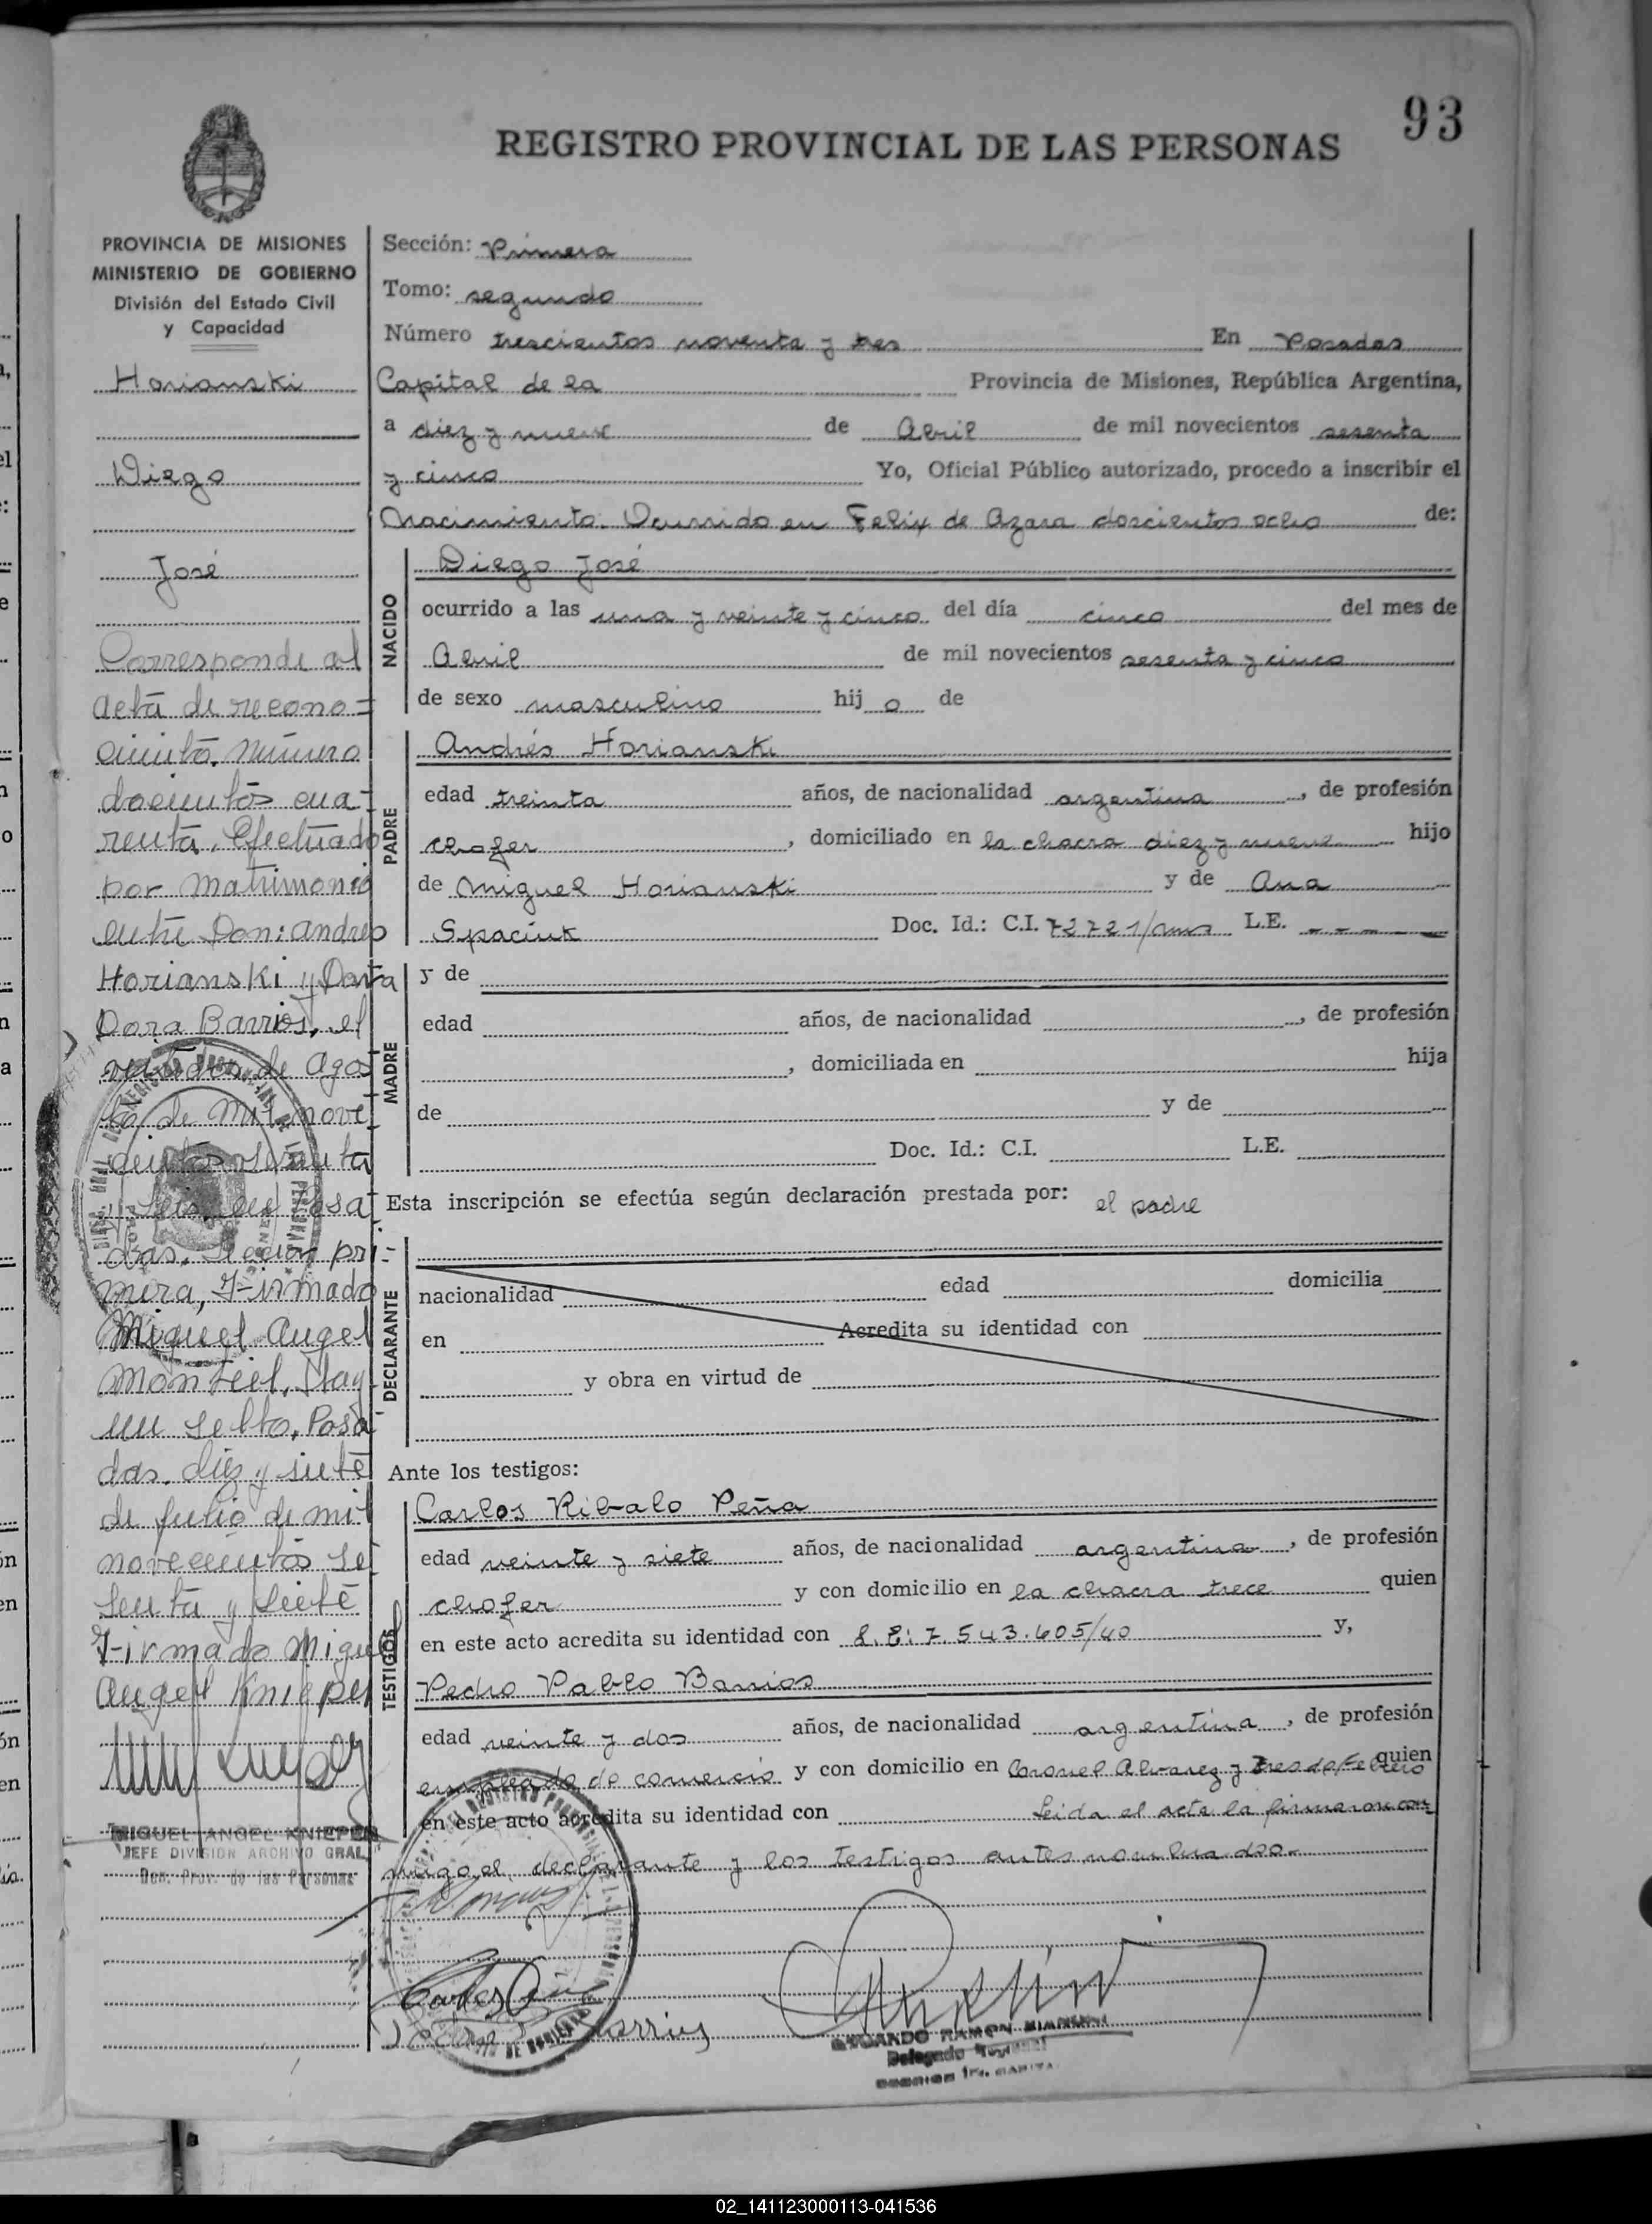 93
REGISTRO PROVINCIAL DE LAS PERSONAS
PROVINCIA DE MISIONES
MINISTERIO DE GOBIERNO
División del Estado Civil
y Capacidad
Horianski
Diego
José
Corresponde al
acta de recono=
cimiento número
docientos cua=
renta, Efectuado
por matrimonio
entre Don: Andres
Horianski y Doña
Dora Barrios, el
de Agos
to de mil nove
cientos sesenta
y seis, en Posa
das, Sección pri=
mera, Firmado
Miguel Angel
Montiel, Hay
un sello, Posa
das, diez y siete
de julio de mil
novecientos se
senta y siete
Firmado Miguel
Angel Knieper
MIGUEL ANGEL KNIEPER
JEFE DIVISION ARCHIVO GRAL.
Prov. de las Personas
Sección: Primera
Tomo: segundo
Número trescientos noventa y tres En Posadas
Capital de la Provincia de Misiones, República Argentina,
a diez y nueve de Abril de mil novecientos sesenta
y cinco Yo, Oficial Público autorizado, procedo a inscribir el
Nacimiento. Ocurrido en Felix de Azara doscientos ocho de:
NACIDO
Diego José
ocurrido a las una y veinte y cinco del día cinco del mes de
Abril de mil novecientos sesenta y cinco
de sexo masculino hij o de
PADRE
Andrés Horianski
edad treinta años, de nacionalidad argentina, de profesión
chofer, domiciliado en la chacra diez y nueve hijo
de Miguel Horianski y de Ana
Spaciuk Doc. Id.: C.I. 72721/ L.E. - - - -
MADRE
y de
edad años, de nacionalidad , de profesión
, domiciliada en hija
de y de
Doc. Id.: C.I. L.E.
Esta inscripción se efectúa según declaración prestada por: el padre
DECLARANTE
nacionalidad edad domicilia
en Acredita su identidad con
y obra en virtud de
Ante los testigos:
TESTIGOS
Carlos Ribalo Peña
edad veinte y siete años, de nacionalidad argentina, de profesión
chofer y con domicilio en la chacra trece quien
en este acto acredita su identidad con L.E: 7.543.605/40 y,
Pedro Pablo Barrios
edad veinte y dos años, de nacionalidad argentina, de profesión
empleado de comercio y con domicilio en Coronel Alvarez y Tres de Febrero quien
en este acto acredita su identidad con Leida el acta la firmaron con
migo el declarante y los testigos antes nombrados.
Carlos Peña
Barrios
RAMON
Delegado
02_141123000113-041536